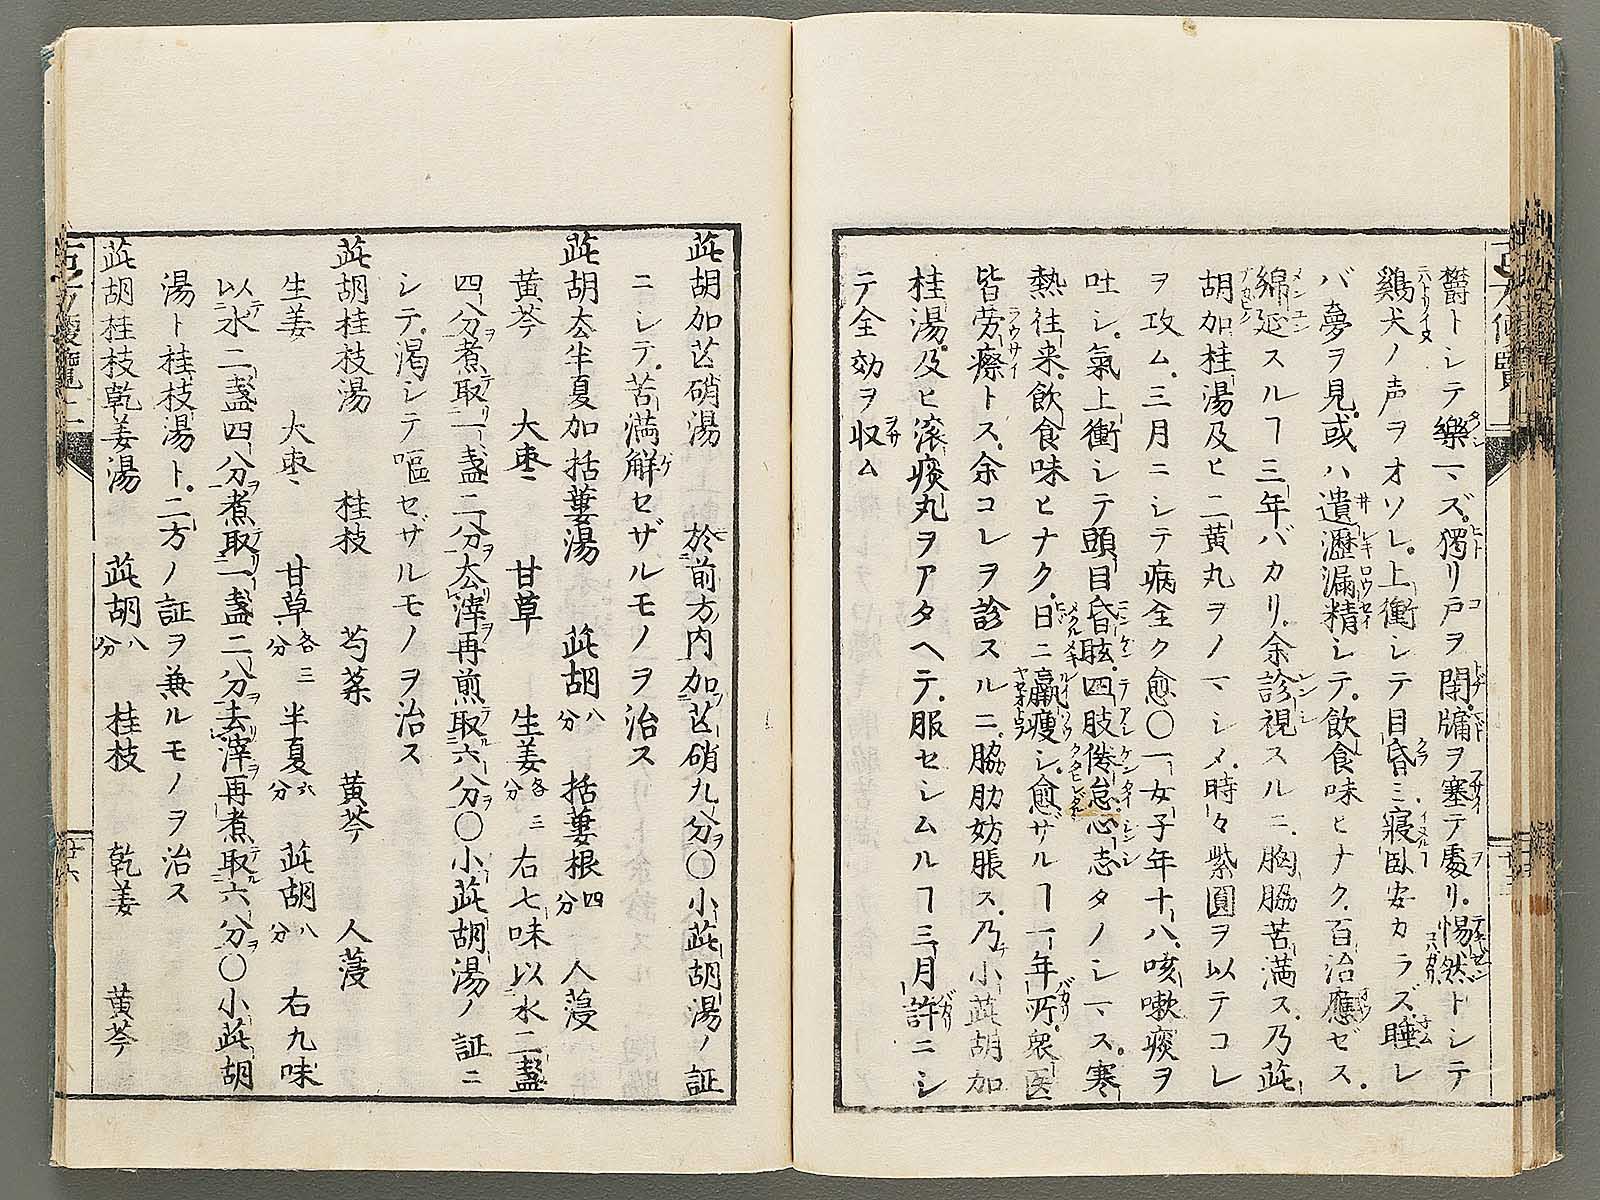 欝トシテ樂マズ獨リ戸ヲ閉牗ヲ塞テ處リ惕然トシテ
鷄犬ノ声ヲオソレ上衝シテ目昏ミ寢臥安カラズ睡レ
バ夢ヲ見或ハ遺瀝漏精シテ飲食味ヒナク百治應ゼス
綿延スルヿ三年バカリ余診視スルニ胸脇苦満ス乃茈
胡加桂湯及ヒ二黄丸ヲノマシメ時々紫圓ヲ以テコレ
ヲ攻ム三月ニシテ病全ク愈〇一女子年十八咳嗽痰ヲ
吐シ氣上衝シテ頭目昏眩四肢倦怠心志タノシマス寒
熱往来飲食味ヒナク日ニ羸痩シ愈サルヿ一年所衆医
皆労瘵トス余コレヲ診スルニ脇肋妨脹ス乃小茈胡加
桂湯及ヒ滚痰丸ヲアタヘテ服セシムルヿ三月許ニシ
テ全効ヲ収ム
茈胡加芒硝湯 於前方内加芒硝九分〇小茈胡湯ノ証
ニシテ苦満解セザルモノヲ治ス
茈胡去半夏加括蔞湯 茈胡八分 括蔞根四分 人蓡
黄芩 大枣 甘草 生姜各三分 右七味以水二盞
四分煮取一盞二分去滓再煎取六分〇小茈胡湯ノ証ニ
シテ渇シテ嘔セザルモノヲ治ス
茈胡桂枝湯 桂枝 芍薬 黄芩 人蓡
生姜 大枣 甘草各三分 半夏六分 茈胡八分 右九味
以水二盞四分煮取一盞二分去滓再煮取六分〇小茈胡
湯ト桂枝湯ト二方ノ証ヲ兼ルモノヲ治ス
茈胡桂枝乾姜湯 茈胡八分 桂枝 乾姜 黄芩